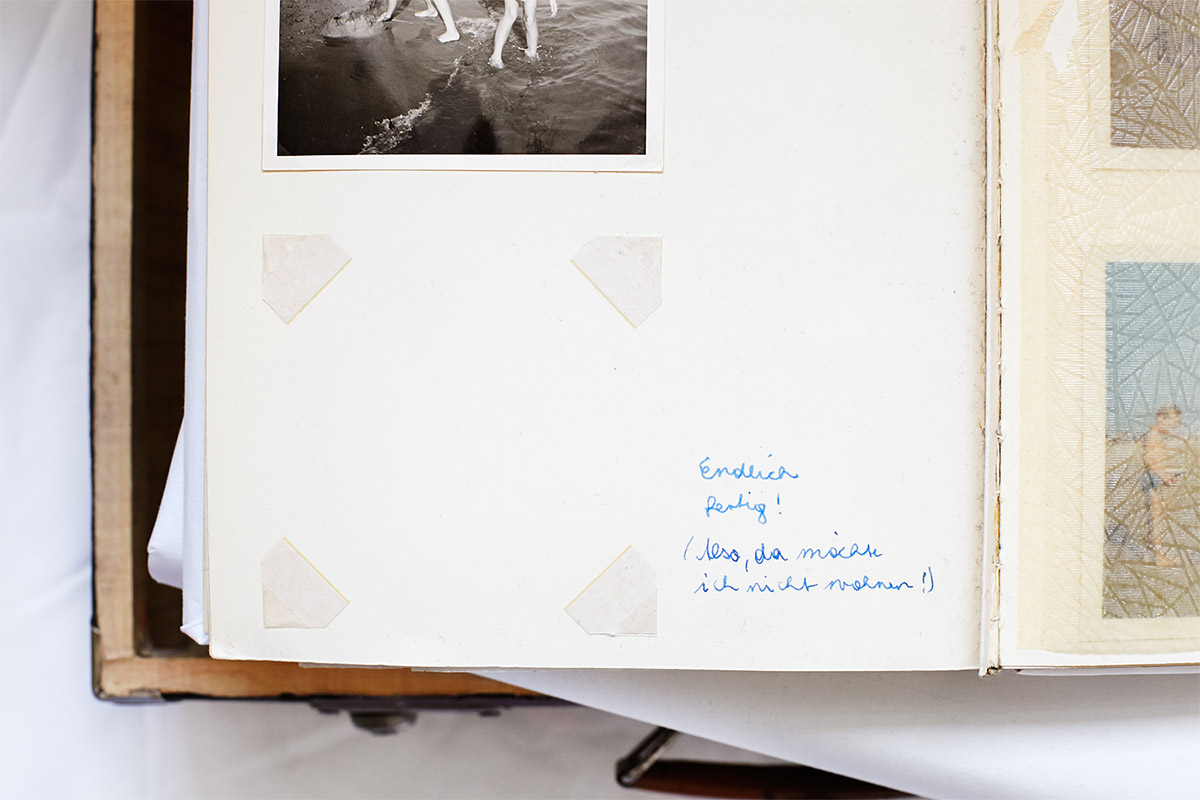 Endlich
fertig!
(Also, da möchte
ich nicht wohnen!)